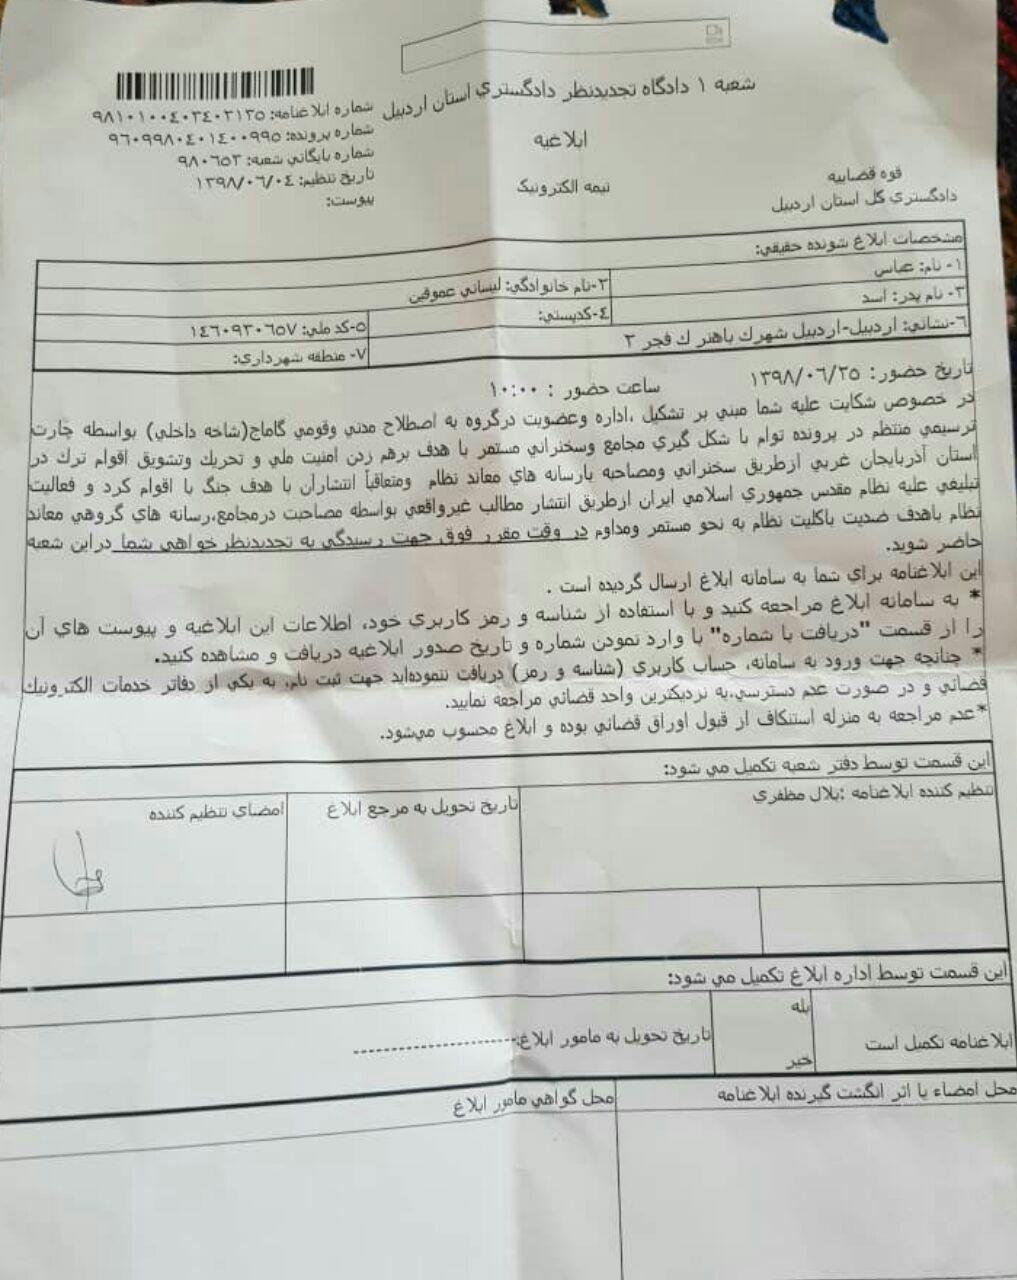 شعبه ۱ دادگاه تجدیدنظر دادگستري استان اردبیل
شماره ابلاغنامه: ۹۸۱۰۱۰۰٤۰۳٤۰۳۱۳٥
شماره پرونده: ۹٦۰۹۹۸۰٤۰۱٤۰۰۹۹٥
شماره بایگاني شعبه: ۹۸۰٦٥۳
تاریخ تنظیم: ۱۳۹۸/۰٦/۰٤
پیوست:
ابلاغیه
نیمه الکترونیک
قوه قضاییه
دادگستري کل استان اردبیل
مشخصات ابلاغ شونده حقیقي:
۱- نام: عباس
۲-نام خانوادگي: لیساني عموقین
۳- نام پدر: اسد
٤-کدپستي:
٥-کد ملي: ۱٤٦۰۹۳۰٦٥۷
٦-نشاني: اردبیل-اردبیل شهرك باهنر ك فجر ۳
۷- منطقه شهرداري:
تاریخ حضور: ۱۳۹۸/۰٦/۲٥
ساعت حضور : ۱۰:۰۰
در خصوص شکایت علیه شما مبني بر تشکیل ،اداره وعضویت درگروه به اصطلاح مدني وقومي گاماج(شاخه داخلي) بواسطه چارت
ترسیمي منتظم در پرونده توام با شکل گیري مجامع وسخنراني مستمر با هدف برهم زدن امنیت ملي و تحریك وتشویق اقوام ترك در
استان آذربایجان غربي ازطریق سخنراني ومصاحبه بارسانه هاي معاند نظام ومتعاقباً انتشارآن با هدف جنگ با اقوام کرد و فعالیت
تبلیغي علیه نظام مقدس جمهوري اسلامي ایران ازطریق انتشار مطالب غیرواقعي بواسطه مصاحبت درمجامع،رسانه هاي گروهي معاند
نظام باهدف ضدیت باکلیت نظام به نحو مستمر ومداوم در وقت مقرر فوق جهت رسیدگي به تجدیدنظر خواهي شما دراین شعبه
حاضر شوید.
این ابلاغنامه براي شما به سامانه ابلاغ ارسال گردیده است .
* به سامانه ابلاغ مراجعه کنید و با استفاده از شناسه و رمز کاربري خود، اطلاعات این ابلاغیه و پیوست هاي آن
را از قسمت "دریافت با شماره" با وارد نمودن شماره و تاریخ صدور ابلاغیه دریافت و مشاهده کنید.
* چنانچه جهت ورود به سامانه، حساب کاربري (شناسه و رمز) دریافت ننموده‌اید جهت ثبت نام، به یکي از دفاتر خدمات الکترونیك
قضائي و در صورت عدم دسترسي،به نزدیکترین واحد قضائي مراجعه نمایید.
*عدم مراجعه به منزله استنکاف از قبول اوراق قضائي بوده و ابلاغ محسوب مي‌شود.
این قسمت توسط دفتر شعبه تکمیل مي شود:
تنظیم کننده ابلاغنامه :بلال مظفري
تاریخ تحویل به مرجع ابلاغ
امضاي تنظیم کننده
این قسمت توسط اداره ابلاغ تکمیل مي شود:
ابلاغنامه تکمیل است
بله
خیر
تاریخ تحویل به مامور ابلاغ:--------------------
محل امضاء یا اثر انگشت گیرنده ابلاغنامه
محل گواهي مامور ابلاغ